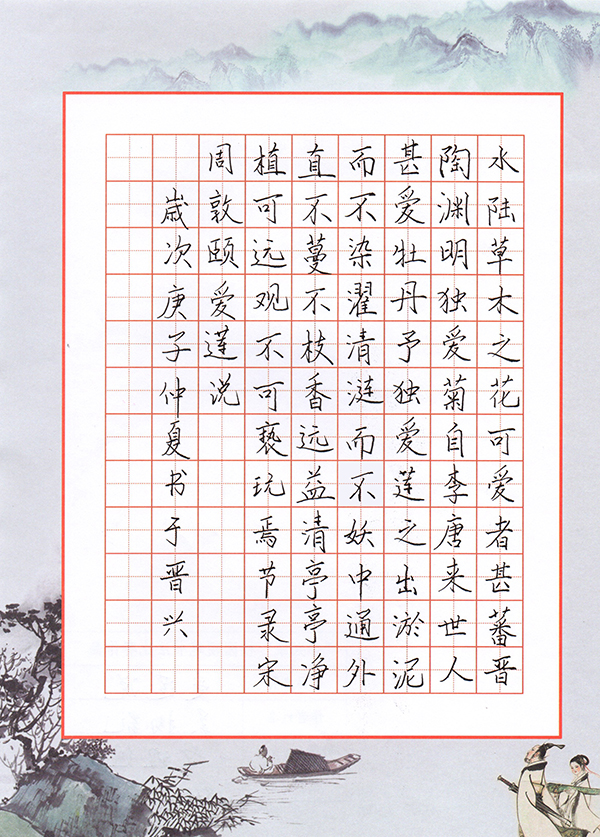 水陆草木之花可爱者甚蕃晋
陶渊明独爱菊自李唐来世人
甚爱牡丹予独爱莲之出淤泥
而不染濯清涟而不妖中通外
直不蔓不枝香远益清亭亭净
植可远观不可亵玩焉节录宋
周敦颐爱莲说
岁次庚子仲夏书于晋兴